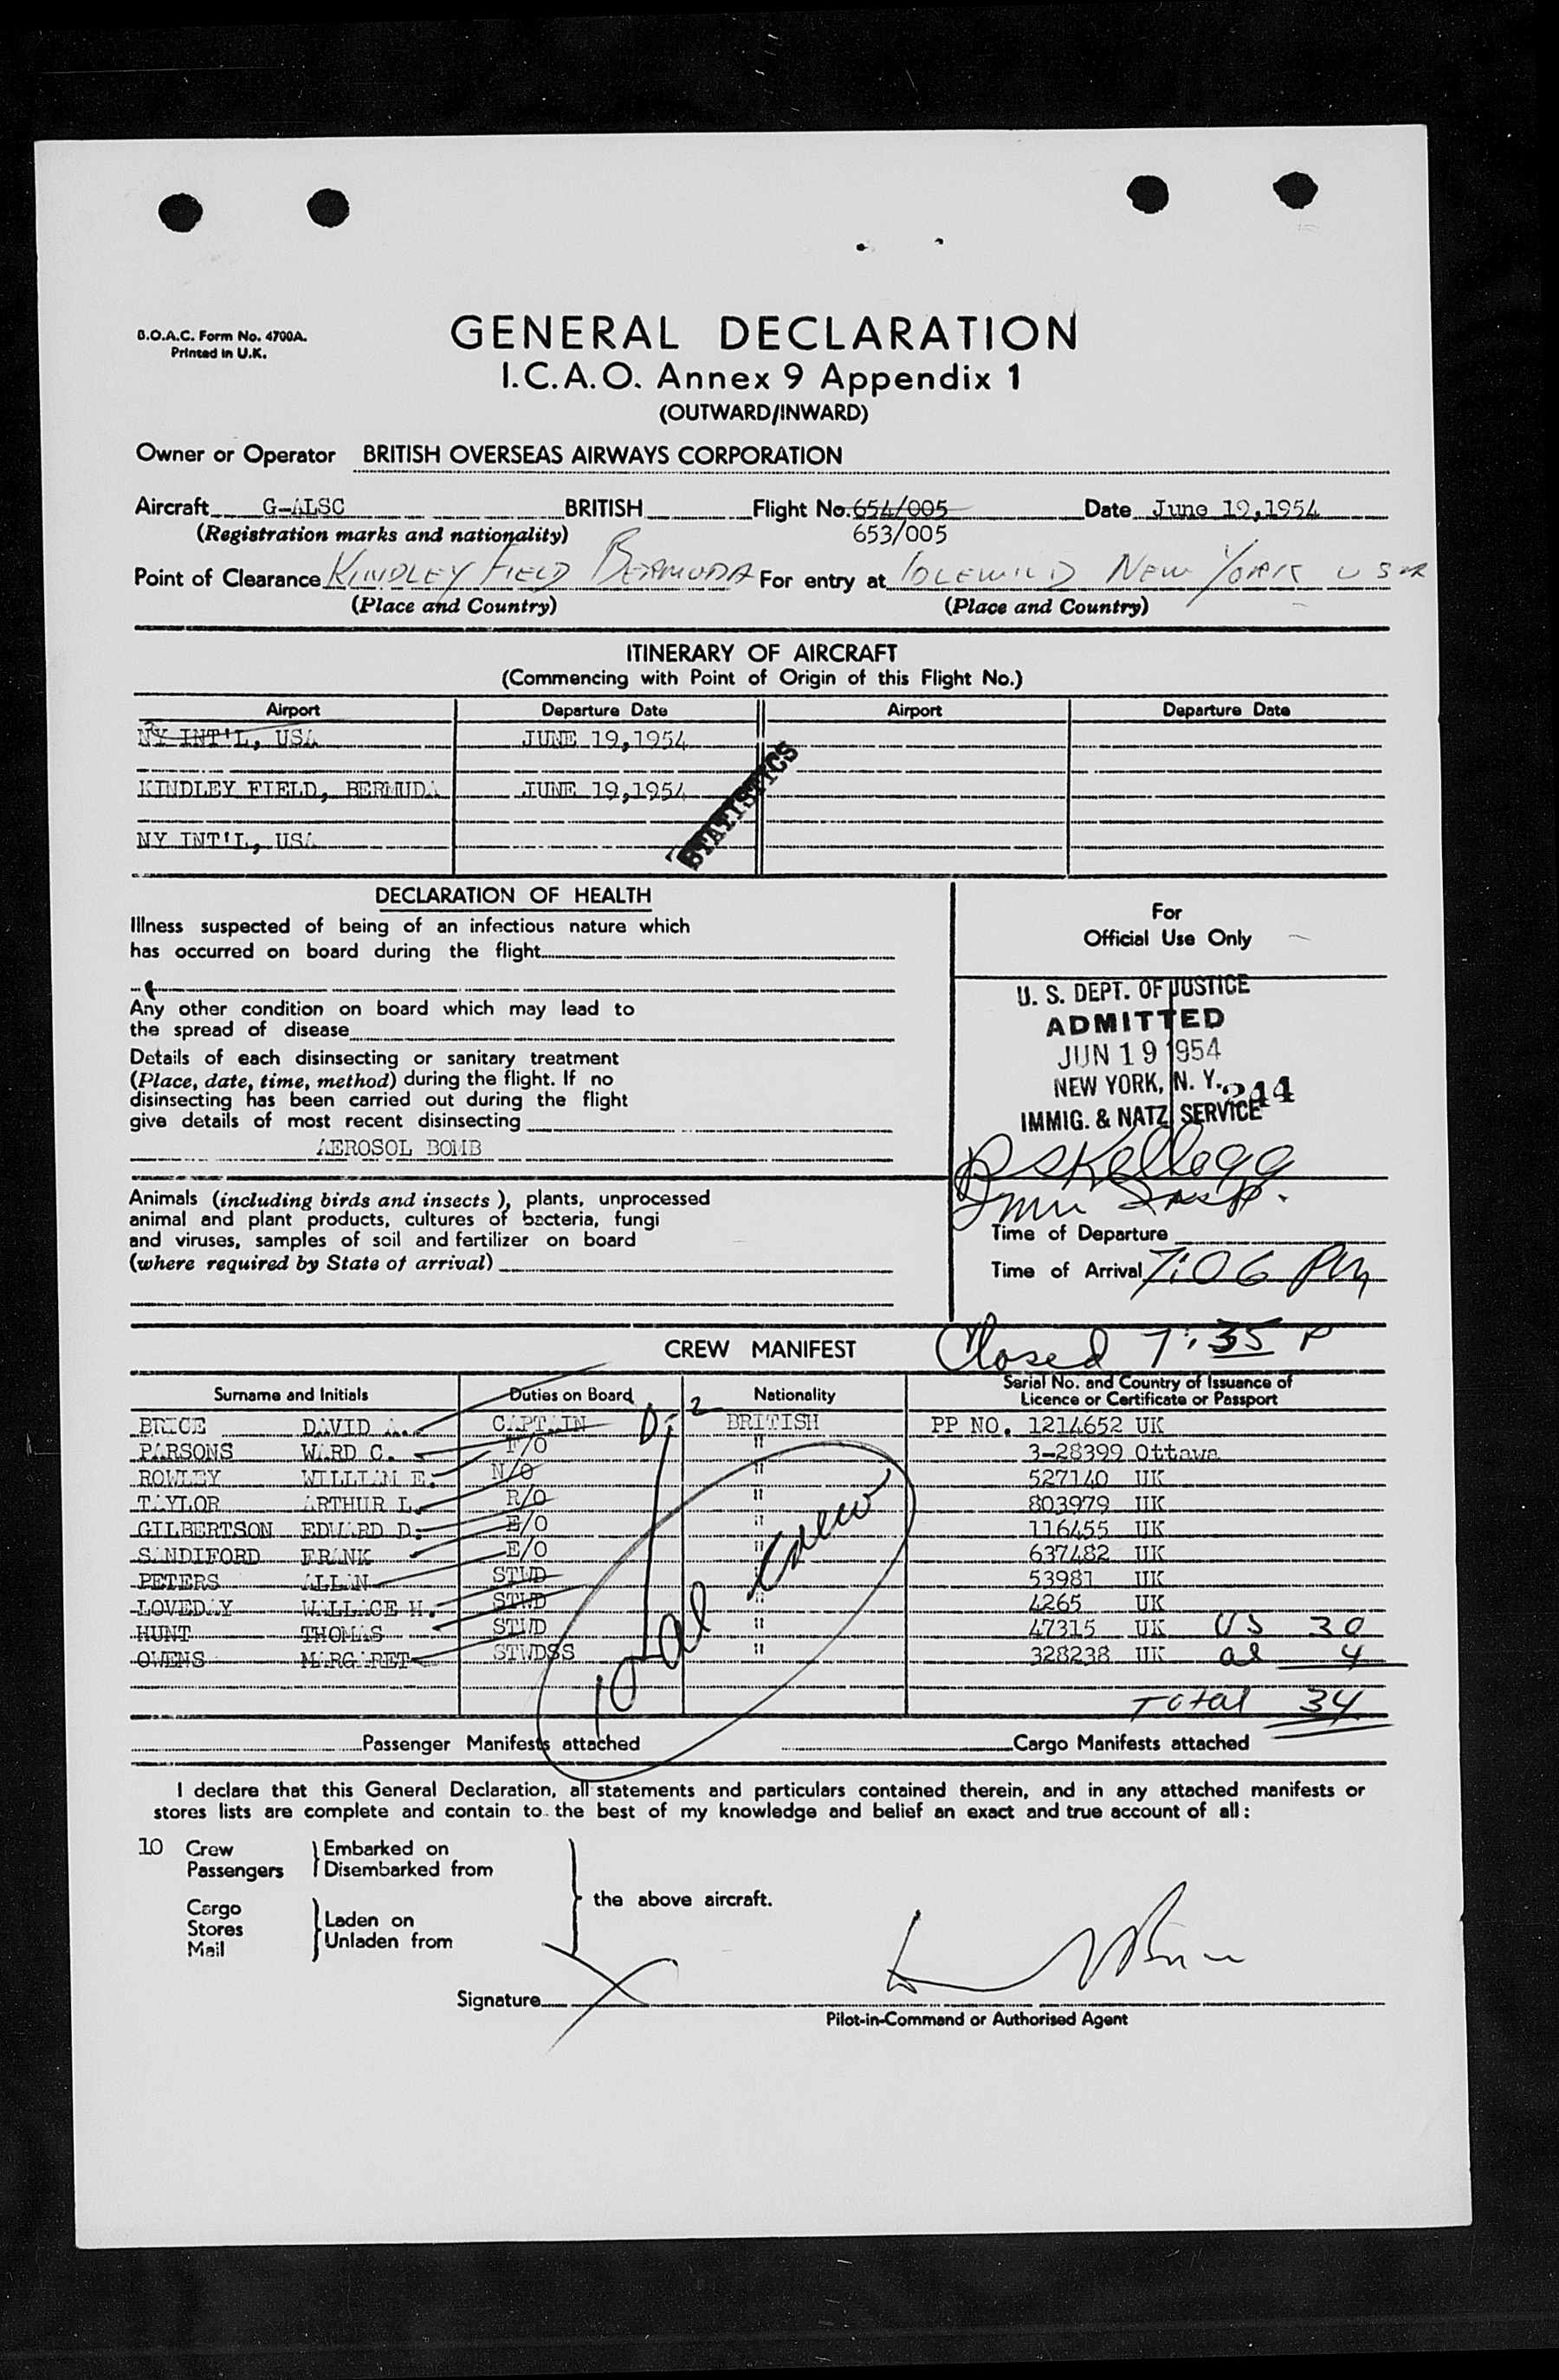 B.O.A.C. Form No. 4700A.
Printed in U.K.
GENERAL DECLARATION
I.C.A.O. Annex 9 Appendix 1
(OUTWARD/INWARD)
Owner or Operator BRITISH OVERSEAS AIRWAYS CORPORATION
Aircraft G-ALSC BRITISH Flight No. 654/005 Date June 19,1954
(Registration marks and nationality) 653/005
Point of Clearance KINDLEY FIELD BERMUDA For entry at IDLEWILD NEW YORK USA
(Place and Country) (Place and Country)
ITINERARY OF AIRCRAFT
(Commencing with Point of Origin of this Flight No.)
Airport Departure Date Airport Departure Date
NY INT'L, USA JUNE 19,1954
KINDLEY FIELD, BERMUDA JUNE 19,1954
STATISTICS
NY INT'L, USA
DECLARATION OF HEALTH
Illness suspected of being of an infectious nature which
has occurred on board during the flight
Any other condition on board which may lead to
the spread of disease
Details of each disinsecting or sanitary treatment
(Place, date, time, method) during the flight. If no
disinsecting has been carried out during the flight
give details of most recent disinsecting
AEROSOL BOMB
Animals (including birds and insects), plants, unprocessed
animal and plant products, cultures of bacteria, fungi
and viruses, samples of soil and fertilizer on board
(where required by State of arrival)
For
Official Use Only
U. S. DEPT. OF JUSTICE
ADMITTED
JUN 19 1954
NEW YORK, N. Y. 244
IMMIG. & NATZ SERVICE
Kellegg
Imm Insp.
Time of Departure
Time of Arrival 7:06 PM
Closed 7:35 P
CREW MANIFEST
Surname and Initials Duties on Board Nationality Serial No. and Country of Issuance of
Licence or Certificate or Passport
BRICE DAVID A. CAPTAIN D-2 BRITISH PP NO. 1214652 UK
PARSONS WARD C. F/O " 3-28399 Ottawa
ROWLEY WILLIAM E. N/O " 527140 UK
TAYLOR ARTHUR L. R/O " 803979 UK
GILBERTSON EDWARD D. E/O " 116455 UK
SANDIFORD FRANK E/O " 637482 UK
PETERS ALLAN STWD " 53981 UK
LOVEDAY WALLACE H. STWD " 4265 UK
HUNT THOMAS STWD " 47315 UK US 30
OWENS MARGARET STWDSS " 328238 UK al 4
10 al crew
Total 34
Passenger Manifests attached Cargo Manifests attached
I declare that this General Declaration, all statements and particulars contained therein, and in any attached manifests or
stores lists are complete and contain to the best of my knowledge and belief an exact and true account of all:
10 Crew Embarked on
Passengers Disembarked from
the above aircraft.
Cargo
Stores Laden on
Mail Unladen from
Signature X
Pilot-in-Command or Authorised Agent